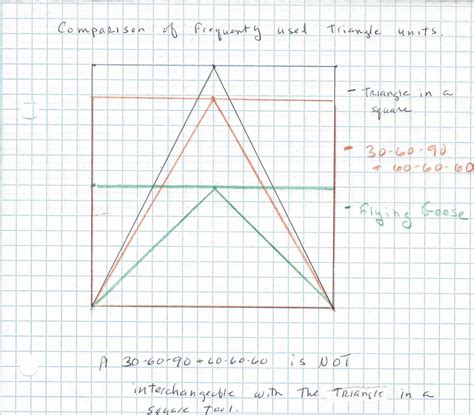 Comparison of Frequently used Triangle units.
- Triangle in a
square
- 30-60-90
+ 60-60-60
- Flying Goose
A 30-60-90 + 60-60-60 is NOT
interchangeable with the Triangle in a
square tool.